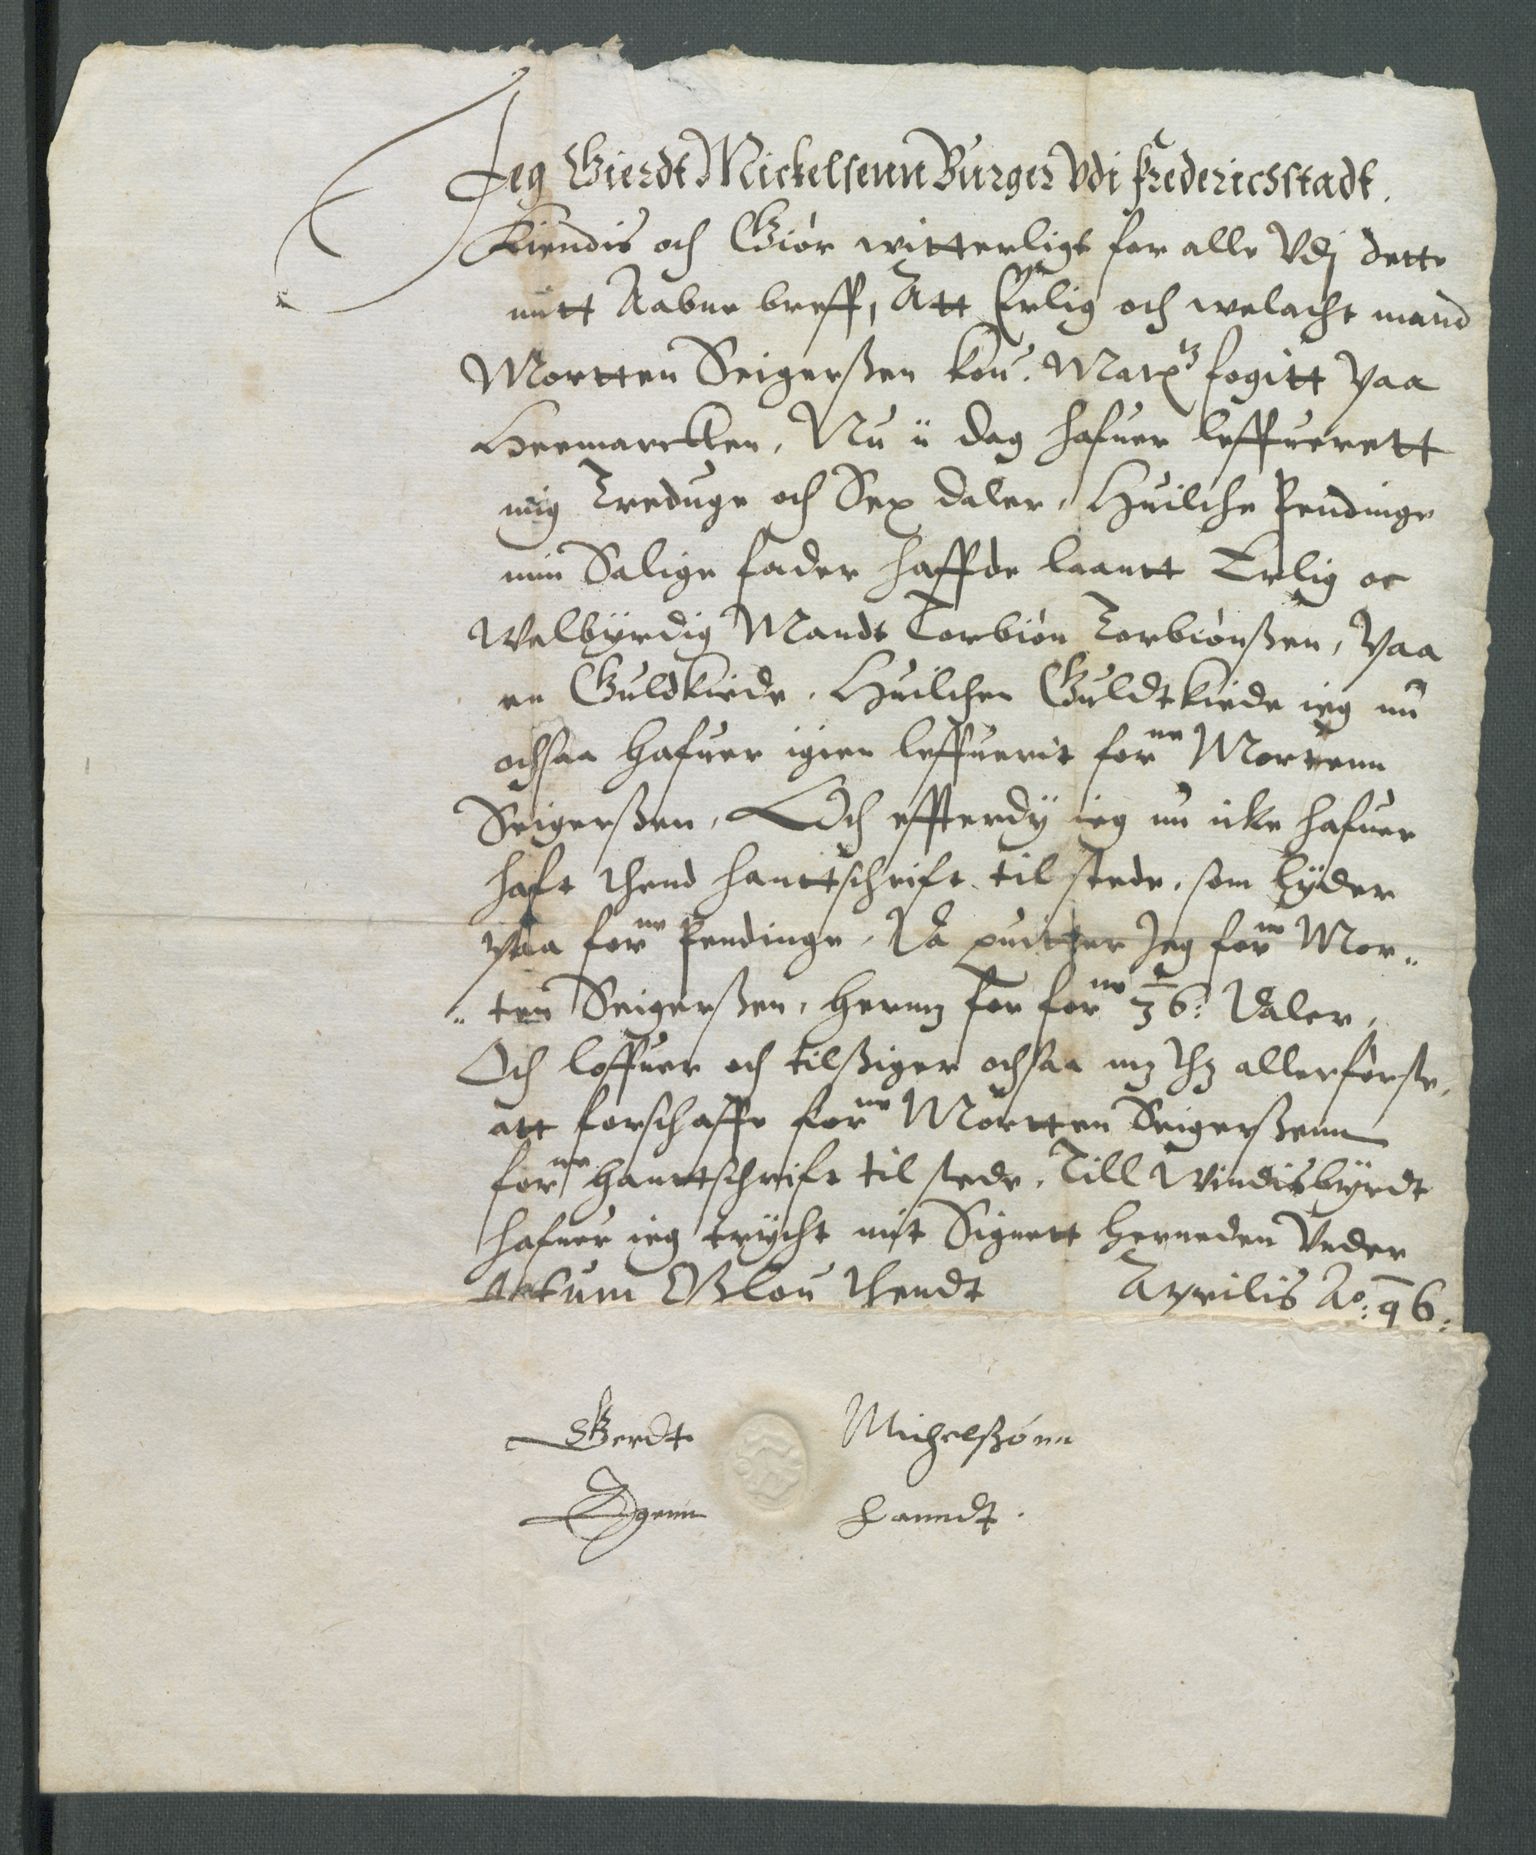 Jeg Gierdt Mickelsenn Burger Vdi Frederichstadt.
Kiendis och Giør witterligt for alle Vdj dette
mitt Aabne breff, Att Erlig och welacht mand
Mortten Seigerßen kon. Maytz fogitt paa
Heemarcken, Nu i dag hafuer leffuerett
mig Treduge och Sex daler, Huilche Pendinge
min Salige fader haffde laantt Erlig oc
Welbyrdig Mandt Torbiøn Torbiønßen, paa
en Guldkiede. Huilchen Guldtkiede ieg nu
ochsaa hafuer igien leffuerit forne Mortenn
Seigerßen, Och effterdy ieg nu icke hafuer
haft thend hanttschrift til stede, som lyder
paa forne Pendinge, Da quitter Jeg forne Mor„
„ten Seigerßen, hermz for forne 36: Daler,
Och loffuer och tilßiger ochsaa mz thz allerførste,
att forschaffe forne Mortten Seigerßenn
forne hanttschrift til stede. Till Windisbyrdt
hafuer ieg trycht mit Signett herneden Vnder
Actum Oßlou thendt Aprilis Ao: 96:
Gerdt Michelßønn
Egenn Hanndt.